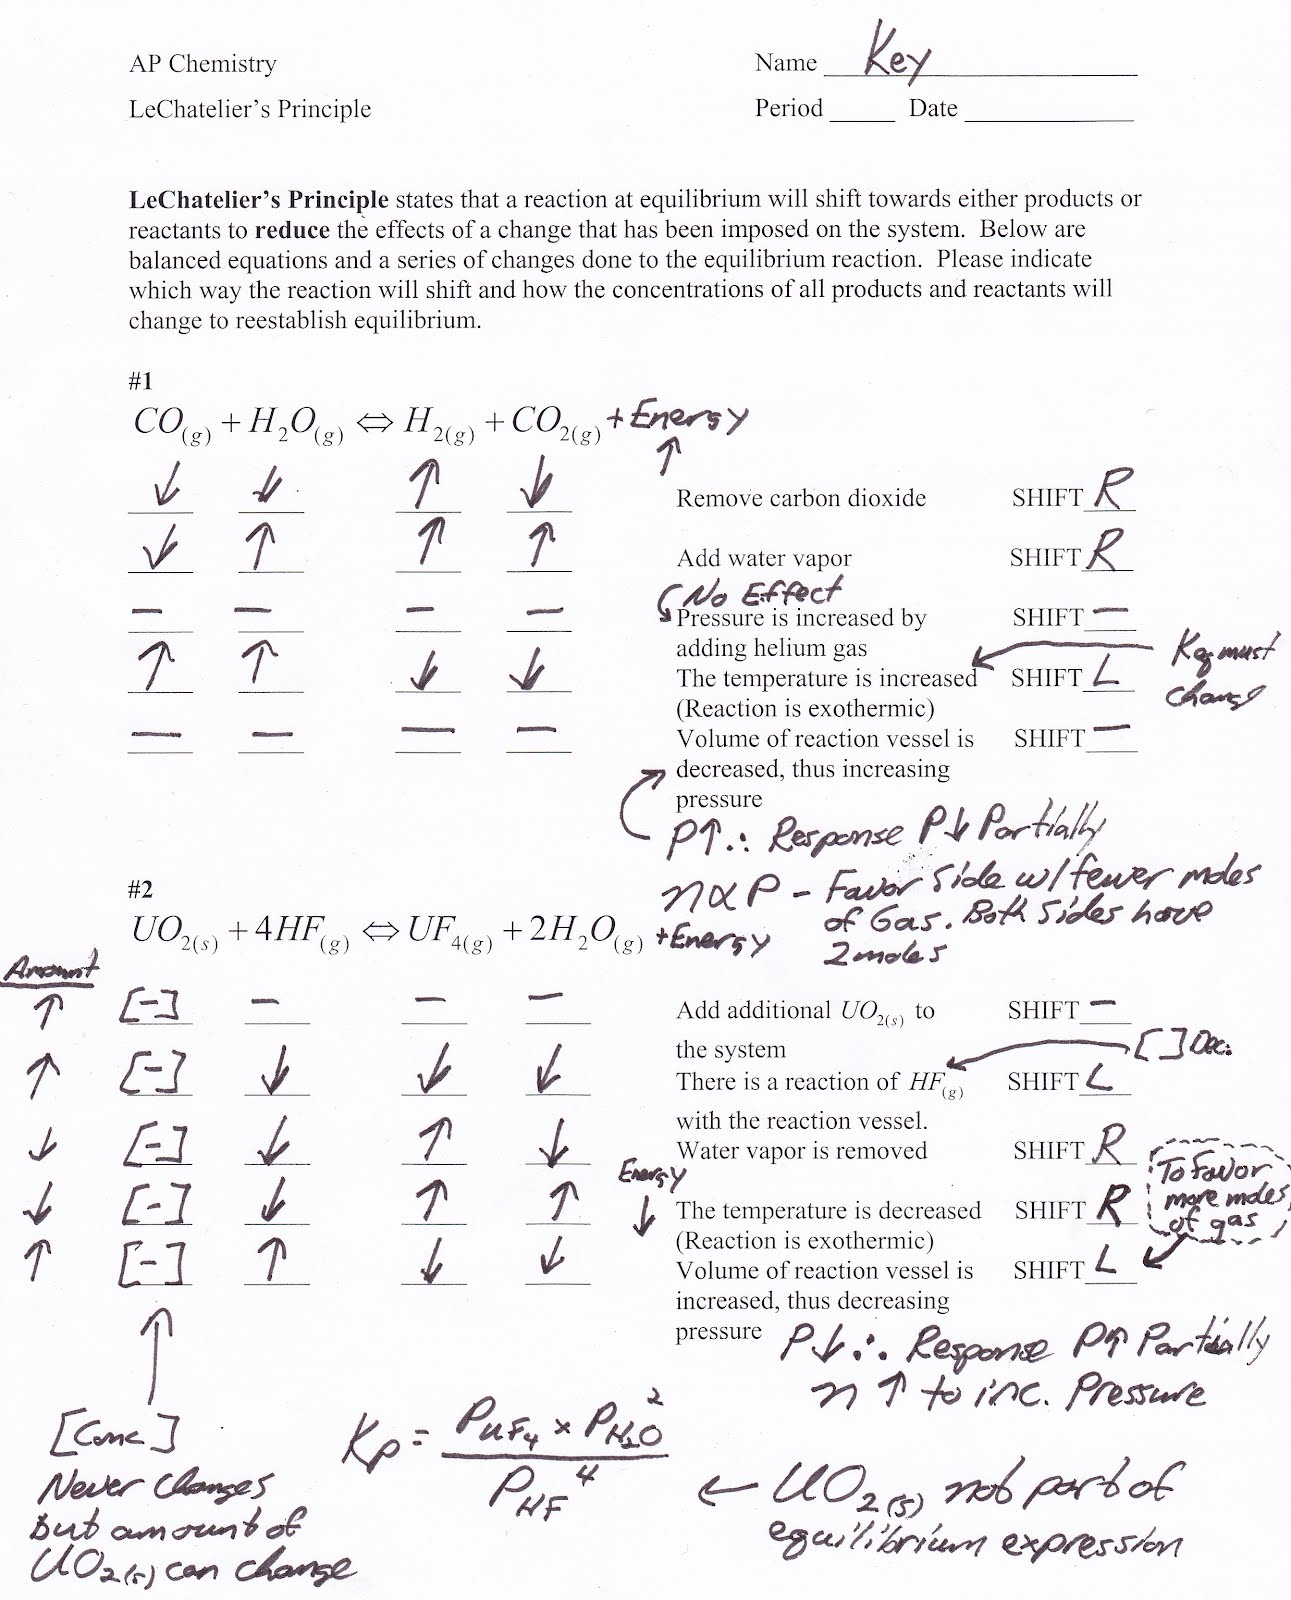 AP Chemistry Name Key
LeChatelier's Principle Period _____ Date _____________
LeChatelier's Principle states that a reaction at equilibrium will shift towards either products or
reactants to reduce the effects of a change that has been imposed on the system. Below are
balanced equations and a series of changes done to the equilibrium reaction. Please indicate
which way the reaction will shift and how the concentrations of all products and reactants will
change to reestablish equilibrium.
#1
CO(g) + H₂O(g) ⇔ H₂(g) + CO₂(g) + Energy
↑
↓ ↓ ↑ ↓ Remove carbon dioxide SHIFT R
↓ ↑ ↑ ↑ Add water vapor SHIFT R
No Effect
– – – – Pressure is increased by SHIFT –
adding helium gas
↑ ↑ ↓ ↓ The temperature is increased SHIFT L Keq must
(Reaction is exothermic) change
– – – – Volume of reaction vessel is SHIFT –
decreased, thus increasing
pressure
P↑ ∴ Response P↓ Partially
n ∝ P – Favor Side w/ fewer moles
of Gas. Both sides have
2 moles
#2
UO₂(s) + 4HF(g) ⇔ UF₄(g) + 2H₂O(g) + Energy
Amount
↑ [–] – – – Add additional UO₂(s) to SHIFT –
the system [ ] Dec.
↑ [–] ↓ ↓ ↓ There is a reaction of HF(g) SHIFT L
with the reaction vessel.
↓ [–] ↓ ↑ ↓ Water vapor is removed SHIFT R
Energy
↓ [–] ↓ ↑ ↑ ↓ The temperature is decreased SHIFT R
(Reaction is exothermic)
To Favor
more moles
of gas
↑ [–] ↑ ↓ ↓ Volume of reaction vessel is SHIFT L
increased, thus decreasing
pressure
P↓ ∴ Response P↑ Partially
n ↑ to inc. Pressure
↑
[Conc]
Never Changes
but amount of
UO₂(s) can change
Kp = PUF₄ × PH₂O² / PHF⁴
← UO₂(s) not part of
equilibrium expression